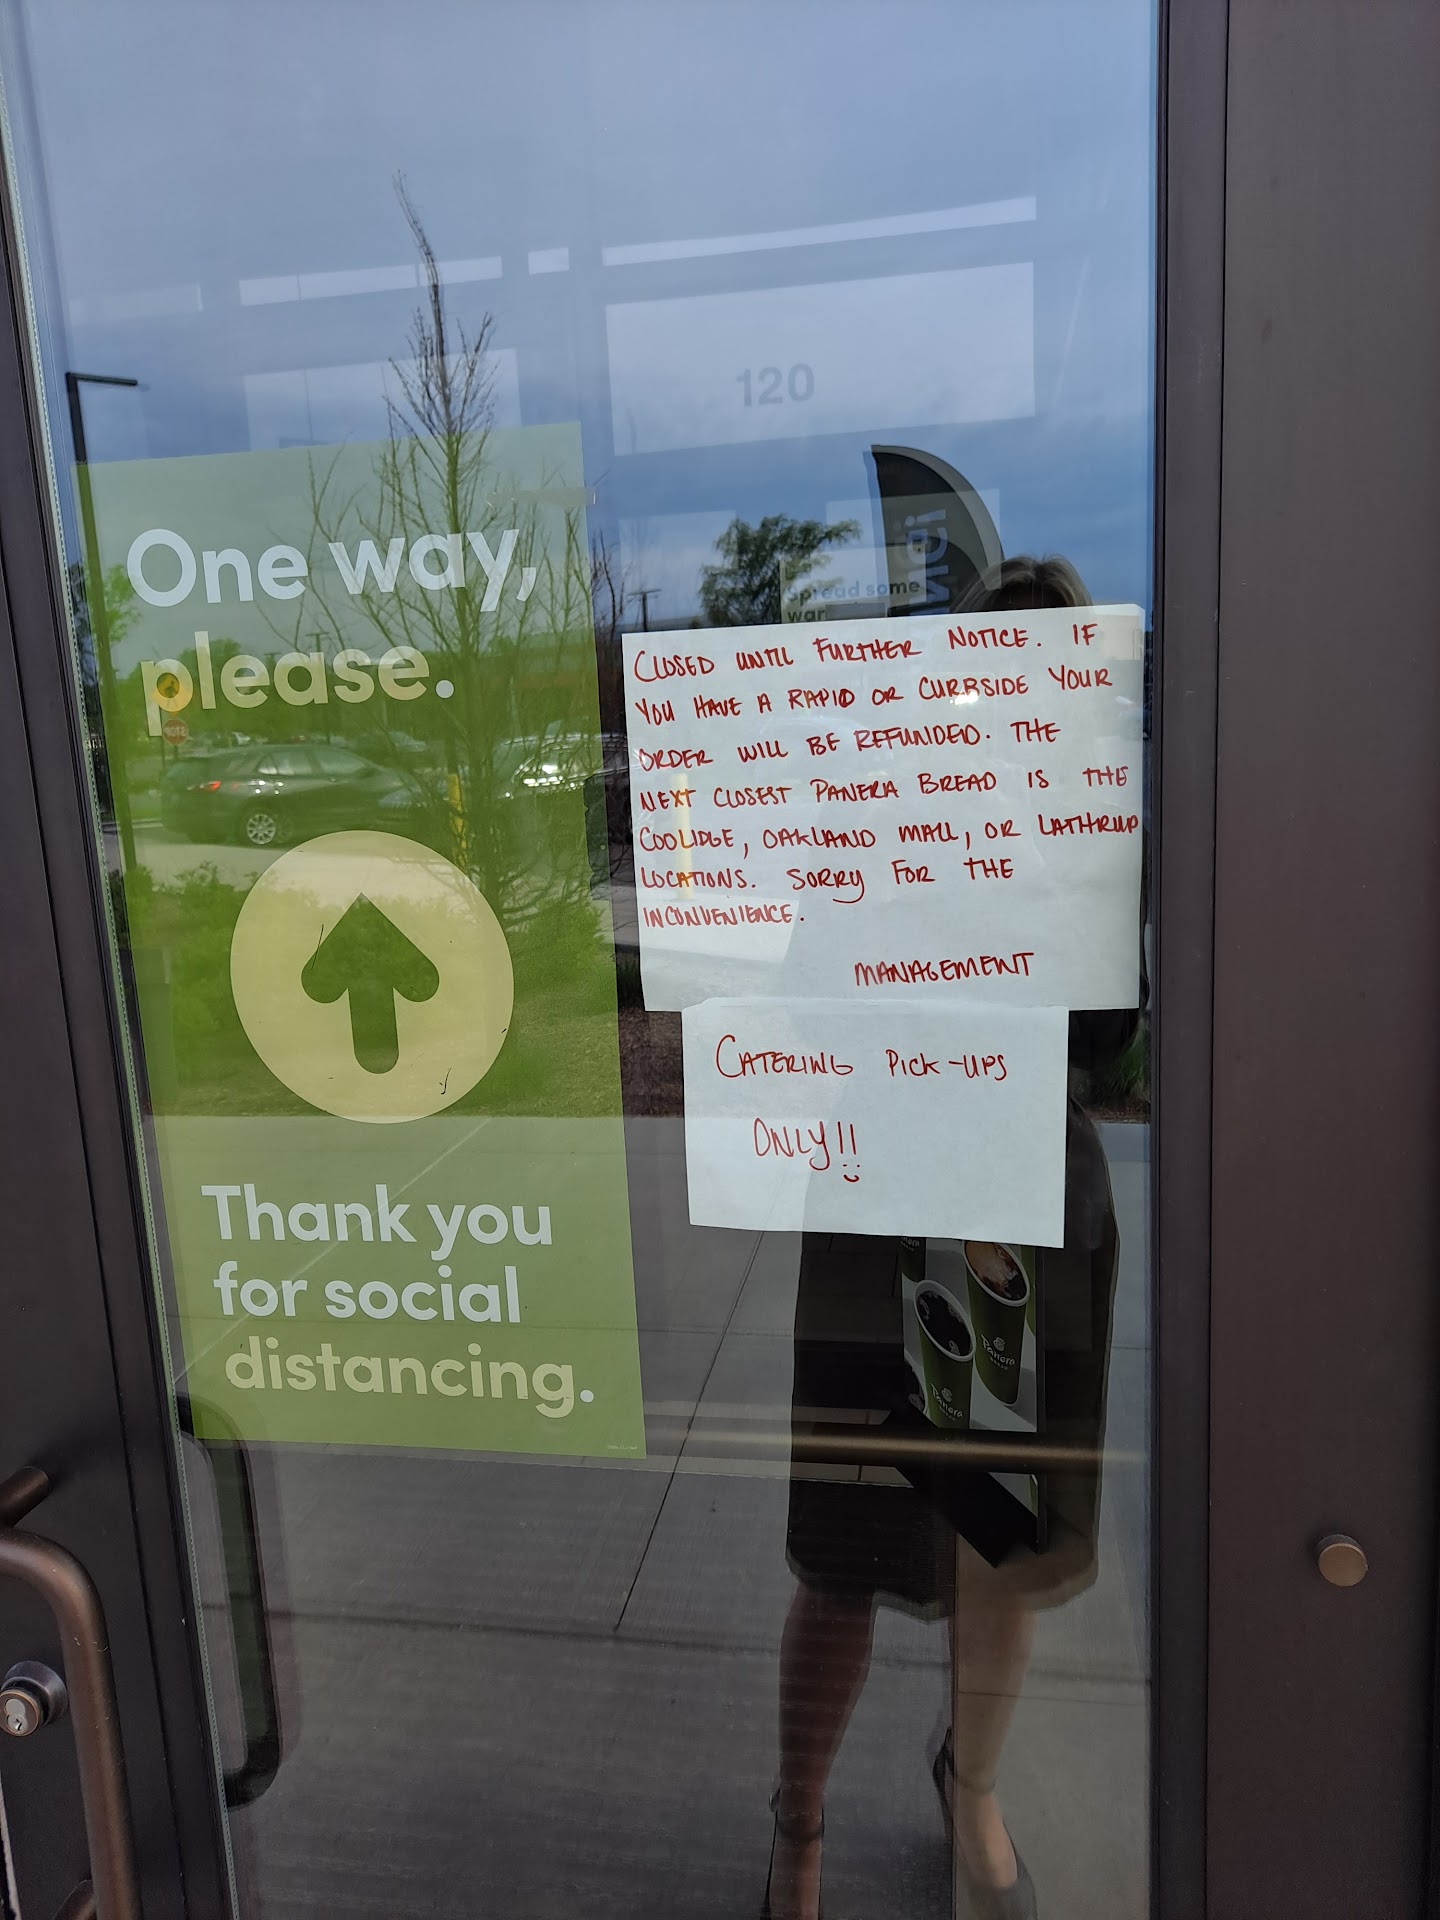 120
One way,
please.
Thank you
for social
distancing.
Spread some
war
CLOSED UNTIL FURTHER NOTICE. IF
YOU HAVE A RAPID OR CURBSIDE YOUR
ORDER WILL BE REFUNDED. THE
NEXT CLOSEST PANERA BREAD IS THE
COOLIDGE, OAKLAND MALL, OR LATHRUP
LOCATIONS. SORRY FOR THE
INCONVENIENCE.
MANAGEMENT
CATERING PICK-UPS
ONLY!!
Panera
BREAD
Panera
STOP